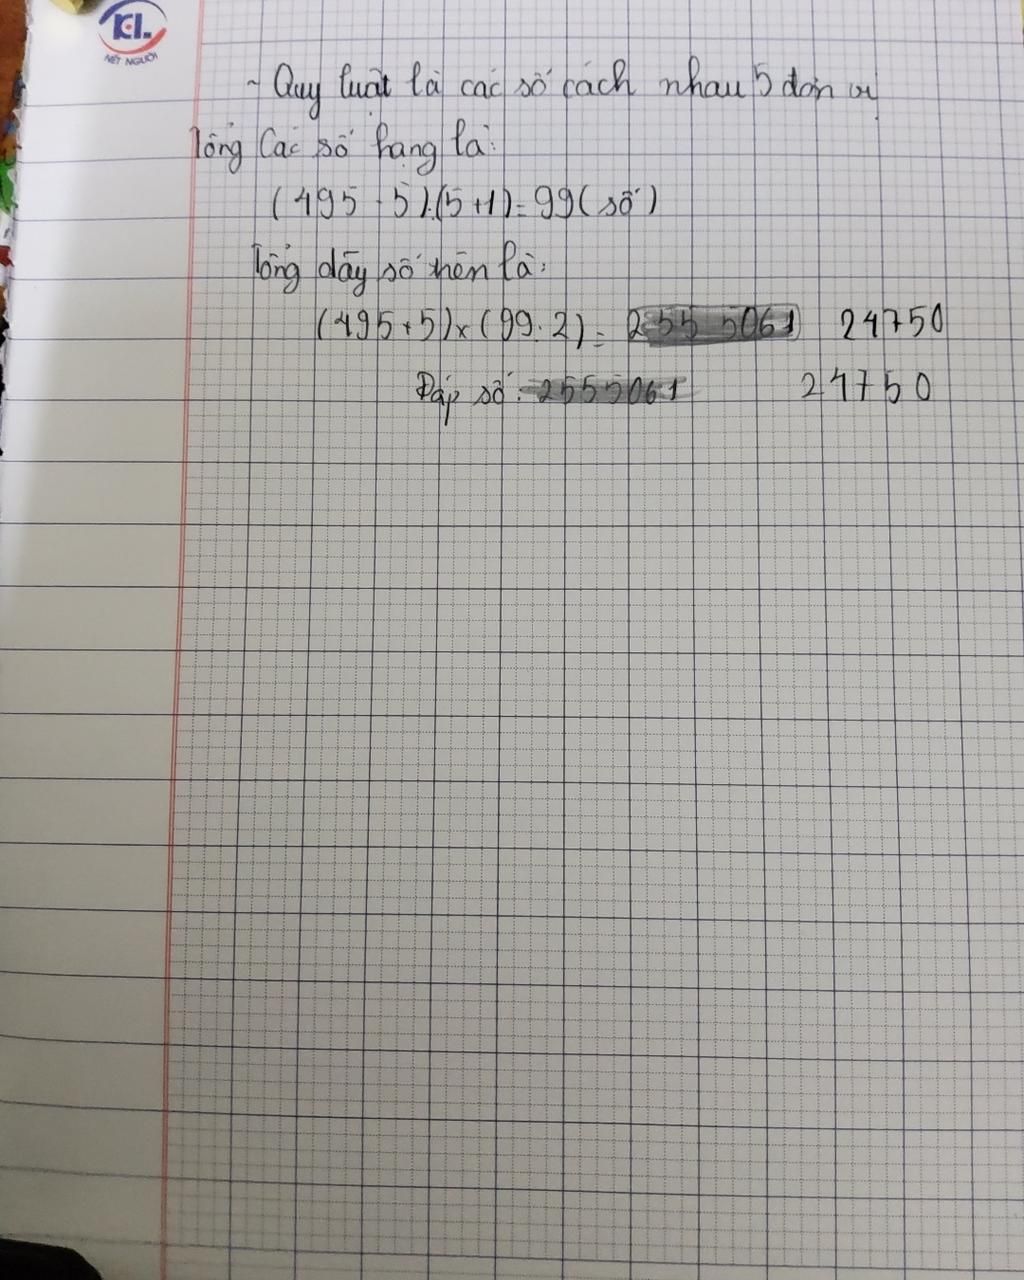 KL.
NÉT NGƯỜI
~ Quy luật là các số cách nhau 5 đơn vị
Tổng Các số hạng là:
(495 - 5):(5+1)=99(số)
Tổng dãy số trên là:
(495+5)×(99:2)= 2555061 24750
Đáp số: 2555061 24750